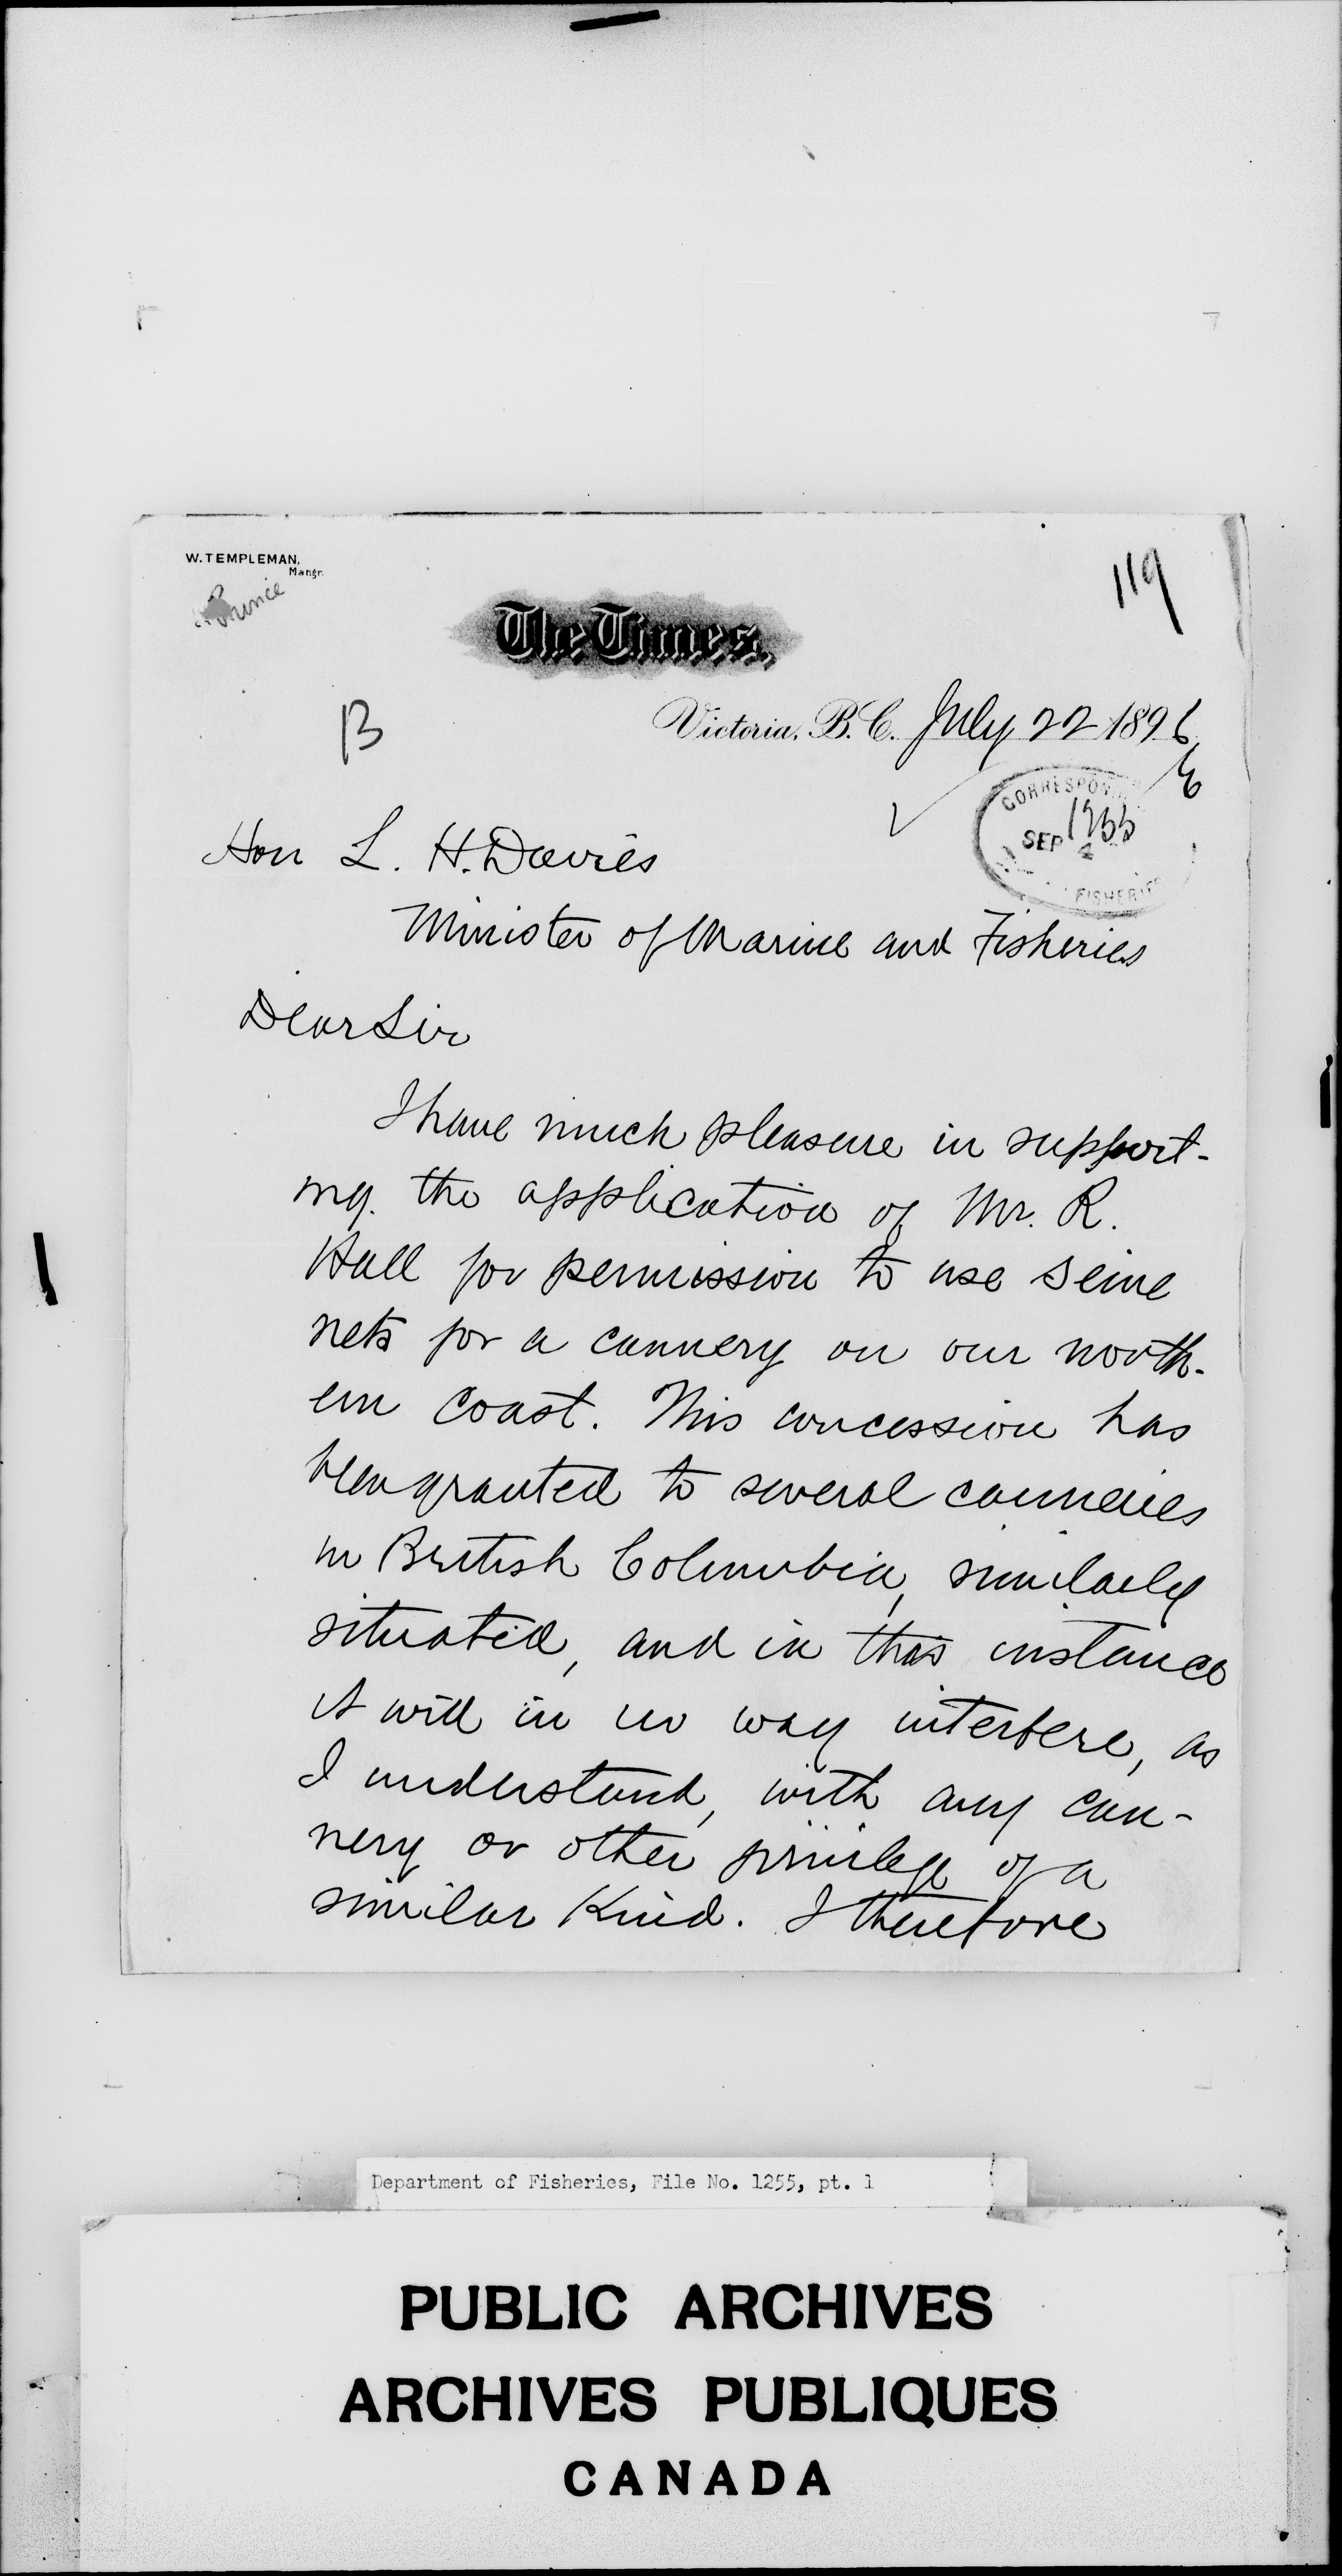 W. TEMPLEMAN,
Mangr.
Prince
119
The Times.
B
Victoria, B.C. July 22 1896
CORRESPON
SEP 4
FISHERIES
Hon L. H. Davies
Minister of Marine and Fisheries
Dear Sir
I have much pleasure in support-
ing the application of Mr. R.
Hall for permission to use seine
nets for a cannery on our north-
ern coast. This concession has
been granted to several canneries
in British Columbia, similarly
situated, and in this instance
it will in no way interfere, as
I understand, with any can-
nery or other privilege of a
similar kind. I therefore
Department of Fisheries, File No. 1255, pt. 1
PUBLIC ARCHIVES
ARCHIVES PUBLIQUES
CANADA